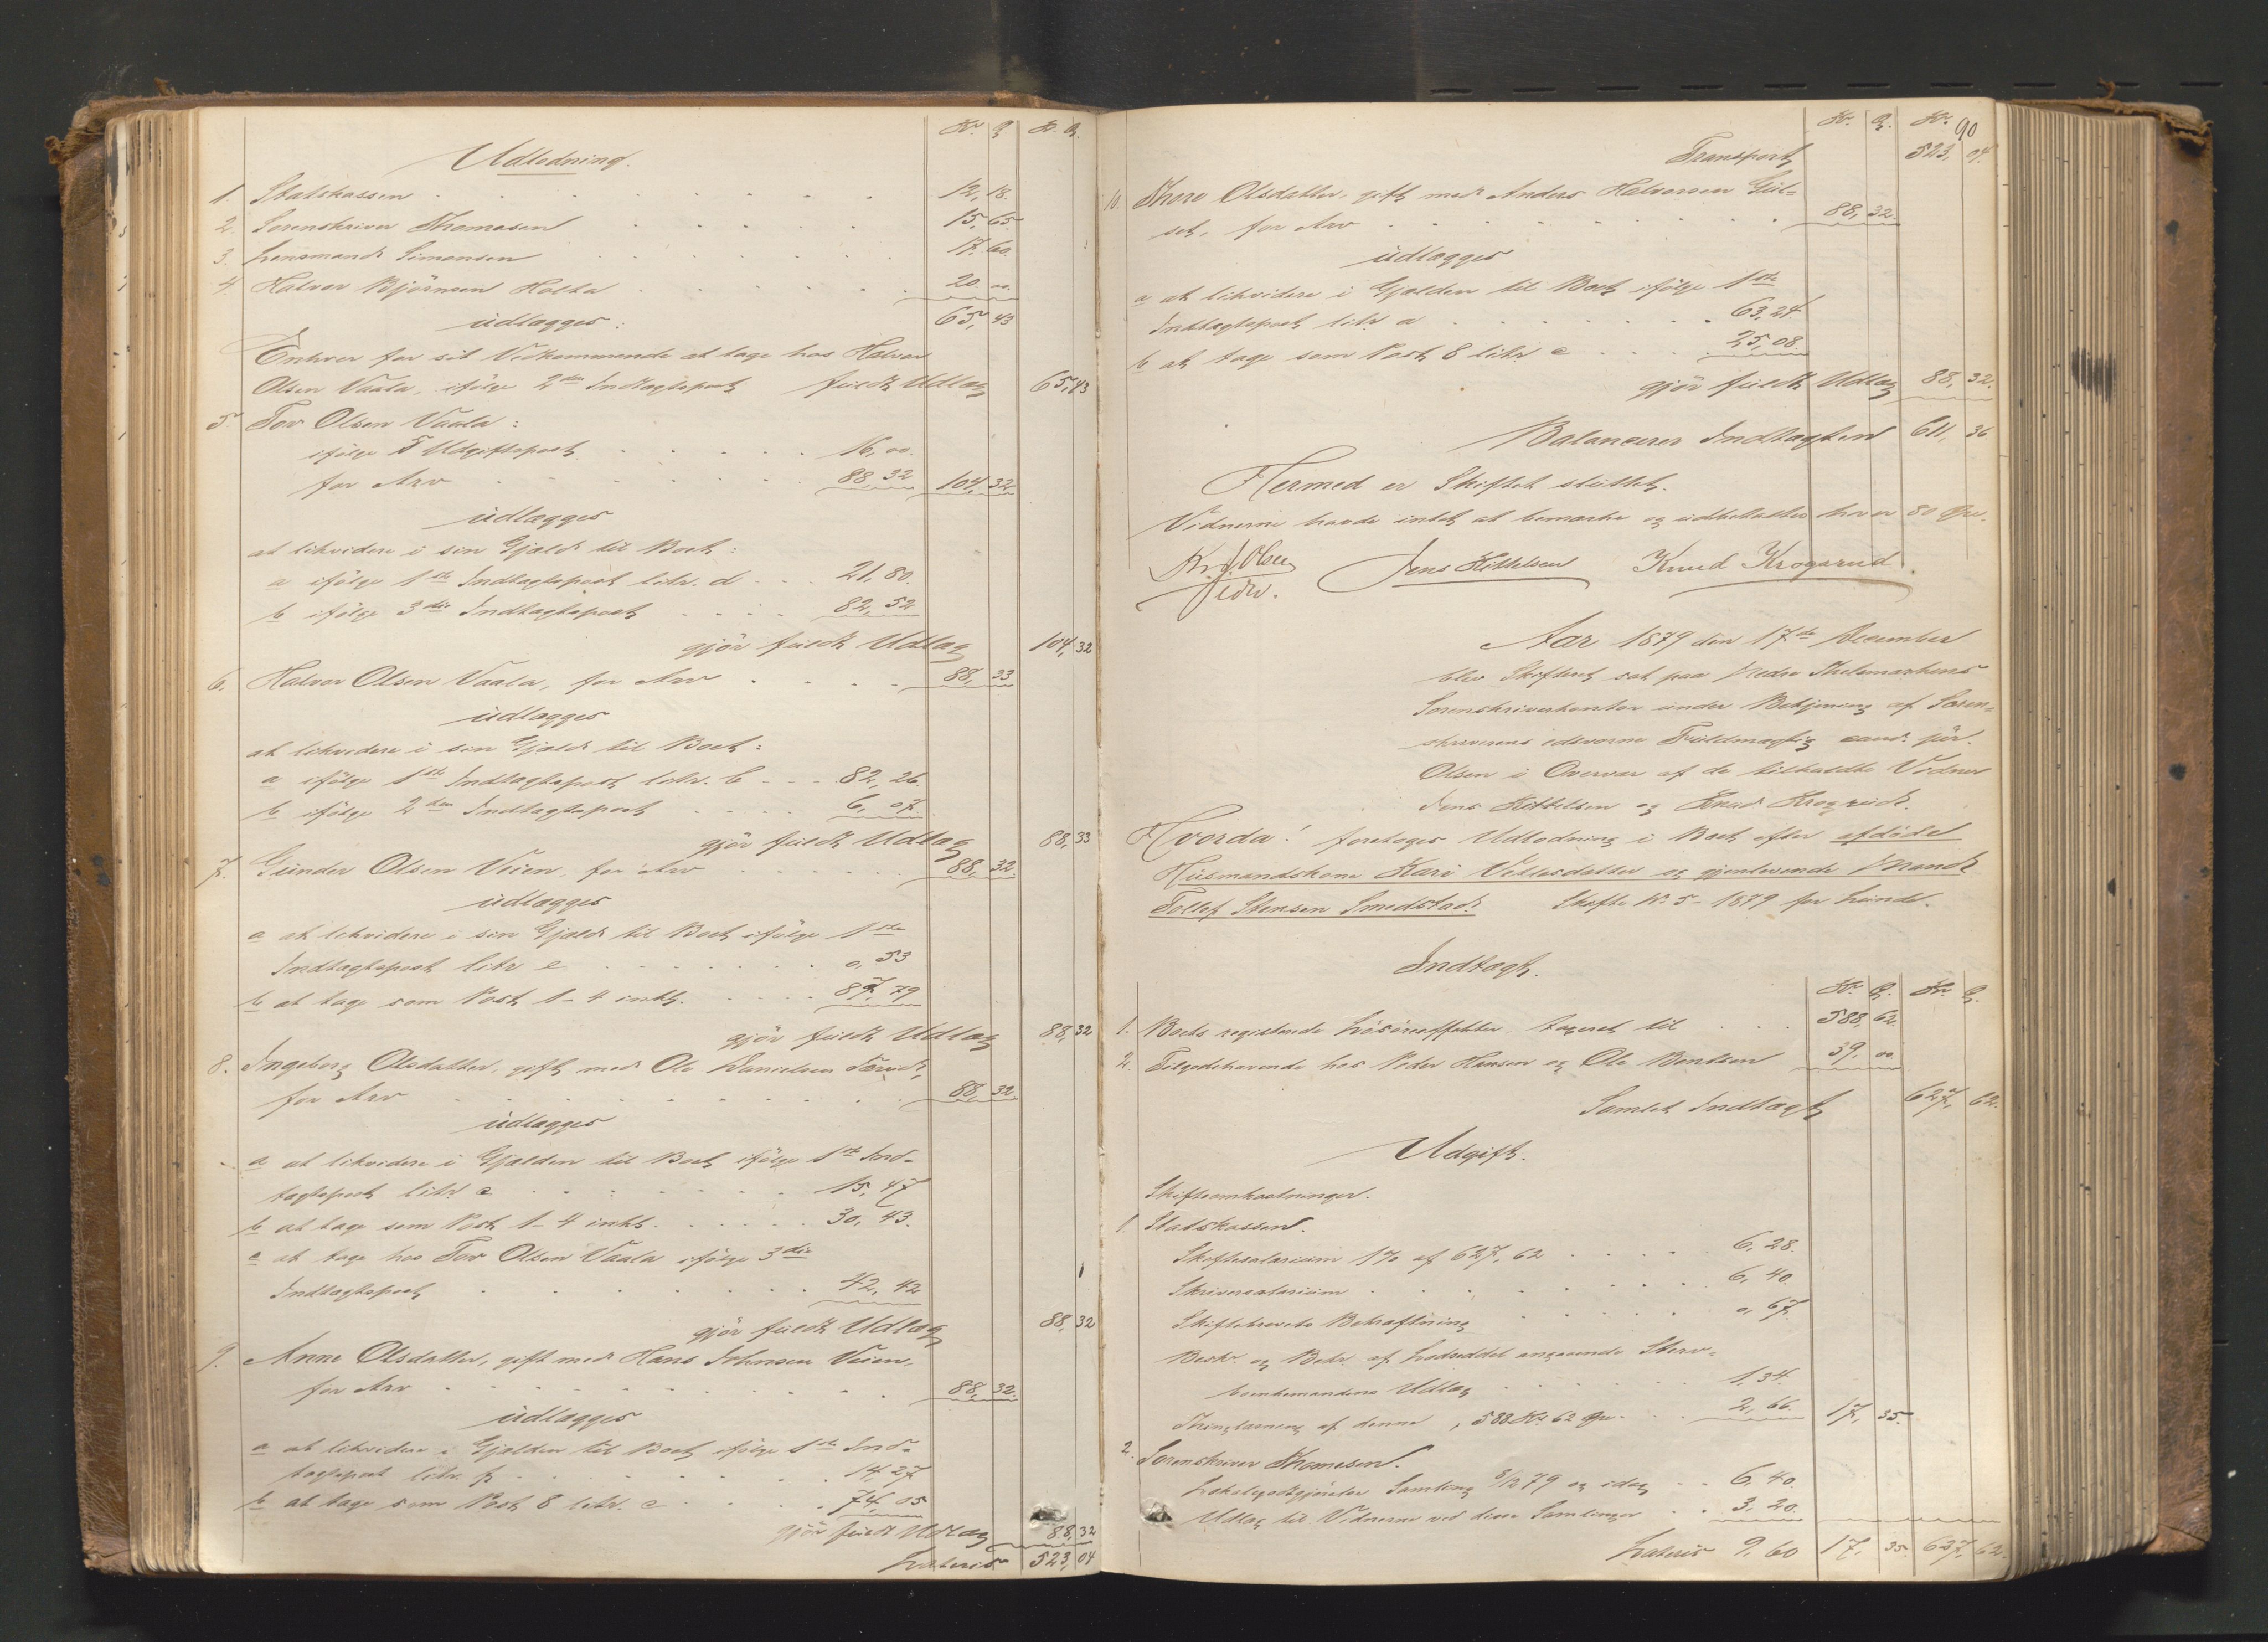 Kr. Ø. Kr. Ø.
Udlodning.
1. Statskassen 12,18.
2. Sorenskriver Thomesen 15,65
3. Lensmand Simonsen 17,60.
4. Halvor Björnsen Holta 20,00.
udlægges: 65,43
Enhver for sit Vedkommende at tage hos Halvor
Olsen Vaala, ifölge 2den Indtægtspost fuldt Udlæg 65,43
5. Tov Olsen Vaala:
ifölge 5 Udgiftspost 16,00.
for Arv 88,32 104,32.
udlægges
at likvidere i sin Gjæld til Boet:
a ifölge 1ste Indtægtspost litr. d 21,80.
b ifölge 3die Indtægtspost 82,52
gjör fuldt Udlæg 104,32
6. Halvor Olsen Vaala, for Arv 88,33
udlægges
at likvidere i sin Gjæld til Boet:
a ifölge 1ste Indtægtspost litr. b 82,26.
b ifölge 2den Indtægtspost 6,07.
gjör fuldt Udlæg 88,33
7. Gunder Olsen Veien, for Arv 88,32.
udlægges
a at likvidere i sin Gjæld til Boet ifölge 1ste
Indtægtspost litr e 0,53
b at tage som Post 1-4 inkl. 87,79
gjör fuldt Udlæg 88,32
8. Ingeborg Olsdatter, gift med Ole Danielsen
for Arv 88,32.
udlægges
a at likvidere i Gjælden til Boet ifölge 1ste Ind-
tægtspost litr c 15,47
b at tage som Post 1-4 inkl. 30,43.
c at tage hos Tov Olsen Vaala ifölge 3die
Indtægtspost 42,42
gjör fuldt Udlæg 88,32
9. Anne Olsdatter, gift med Hans Johnsen Veien,
for Arv 88,32.
udlægges
a at likvidere i Gjælden til Boet ifölge 1ste Ind-
tægtspost litr. f 14,27
b at tage som Post 8 litr. c 74,05
gjör fuldt Udlæg 88,32
Lateris 523,04
Kr. Ø. Kr. 90
Transport 523,04.
10. Thore Olsdatter, gift med Anders Halvorsen Gul=
set, for Arv 88,32.
udlægges
a at likvidere i Gjælden til Boet ifölge 1ste
Indtægtspost litr a 63,24.
b at tage som Post 8 litr c 25,08.
gjör fuldt Udlæg 88,32.
Balancerer Indtægten 611,36
Hermed er Skiftet sluttet.
Vidnerne havde intet at bemærke og udbetaltes hver 80 Øre.
Kr. J. Olsen Jens Kittelsen Knud Krogsrud.
edsv.
Aar 1879 den 17de December
blev Skifteret sat paa Nedre Thelemarkens
Sorenskriverkontor under Betjening af Soren=
skriverens edsvorne Fuldmægtig cand. jur.
Olsen i Overvær af de tilkaldte Vidner
Jens Kittelsen og Knud Krogsrud.
Hvorda! foretoges Udlodning i Boet efter afdöde
Husmandskone Kari Vetlesdatter og gjenlevende Mand
Tollef Stensen Smedstad. Skifte No. 5 - 1879 for Lunde.
Indtægt.
Kr. Ø. Kr. Ø.
1. Boets registrerede Lösöreeffekter, taxeret til 588,62.
2. Tilgodehavende hos Peder Hansen og Ole Bentsen 39,00
Samlet Indtægt 627,62.
Udgift.
Skifteomkostninger.
1. Statskassen.
Skiftesalarium 1% af 627,62 6,28.
Skriversalarium 6,40.
Skiftebrevets Bekræftning 0,67.
Beskr. og Bekr. af Lodseddel angaaende Sterv=
boenkemandens Udlæg 1,34.
Thinglæsning af denne, 588 Kr. 62 Øre 2,66. 17,35.
2. Sorenskriver Thomesen.
Lokalegodtgjörelse Samling 5/12 79 og idag 6,40.
Udlæg til Vidnerne ved disse Samlinger 3,20.
Lateris 9,60 17,35. 627,62.